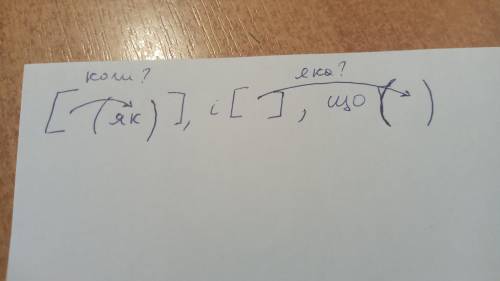 коли? яка?
[ (як) ], і [ ], що ( )